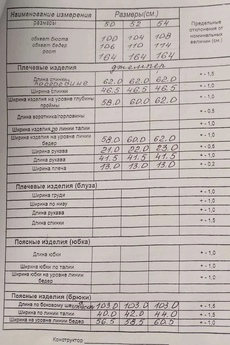 Наименование измерения Размеры(см.) Предельные отклонения от номинальных величин (см.)
размеры 50 52 54
обхват бюста 100 104 108
обхват бедер 106 110 114
рост 164 164 164
Плечевые изделия джемпер
Длина спинки 62.0 62.0 62.0 + - 1,5
Ширина спинки 46.5 46.5 46.5 + - 1,0
Ширина изделия на уровне глубины проймы 58.0 60.0 62.0 + - 1,0
Длина воротника/горловины + - 0,5
Ширина изделия по линии талии + - 1,0
Ширина изделия на уровне линии бедер 58.0 60.0 62.0 + - 1,0
Ширина рукава 21.0 22.0 23.0 + - 0,5
Длина рукава 41.5 41.5 41.5 + - 1,0
Ширина плеча 13.0 13.0 13.0 + - 0,2
Плечевые изделия (блуза)
Ширина груди + - 1,0
Ширина по низу + - 1,0
Длина рукава + - 1,0
Длина спинки + - 1,5
Поясные изделия (юбка)
Длина юбки + - 1,0
Ширина юбки по талии + - 1,0
Ширина юбки на уровне линии бедер + - 1,0
Поясные изделия (брюки)
Длина по боковому 103.0 103.0 103.0 + - 1,5
Ширина по линии талии 40.0 42.0 44.0 + - 1,0
Ширина на уровне линии бедер 56.5 58.5 60.5 + - 1,0
Конструктор